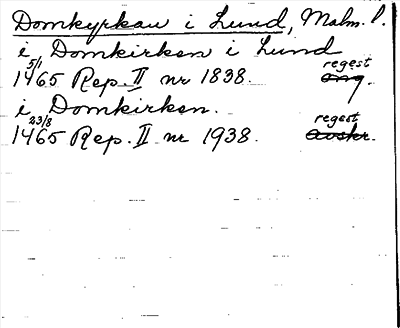 Domkyrkan i Lund, Malm. l.
i Domkirken i Lund
1465 5/1 Rep. II nr 1838. regest
i Domkirken.
1465 23/8 Rep. II nr 1938. regest